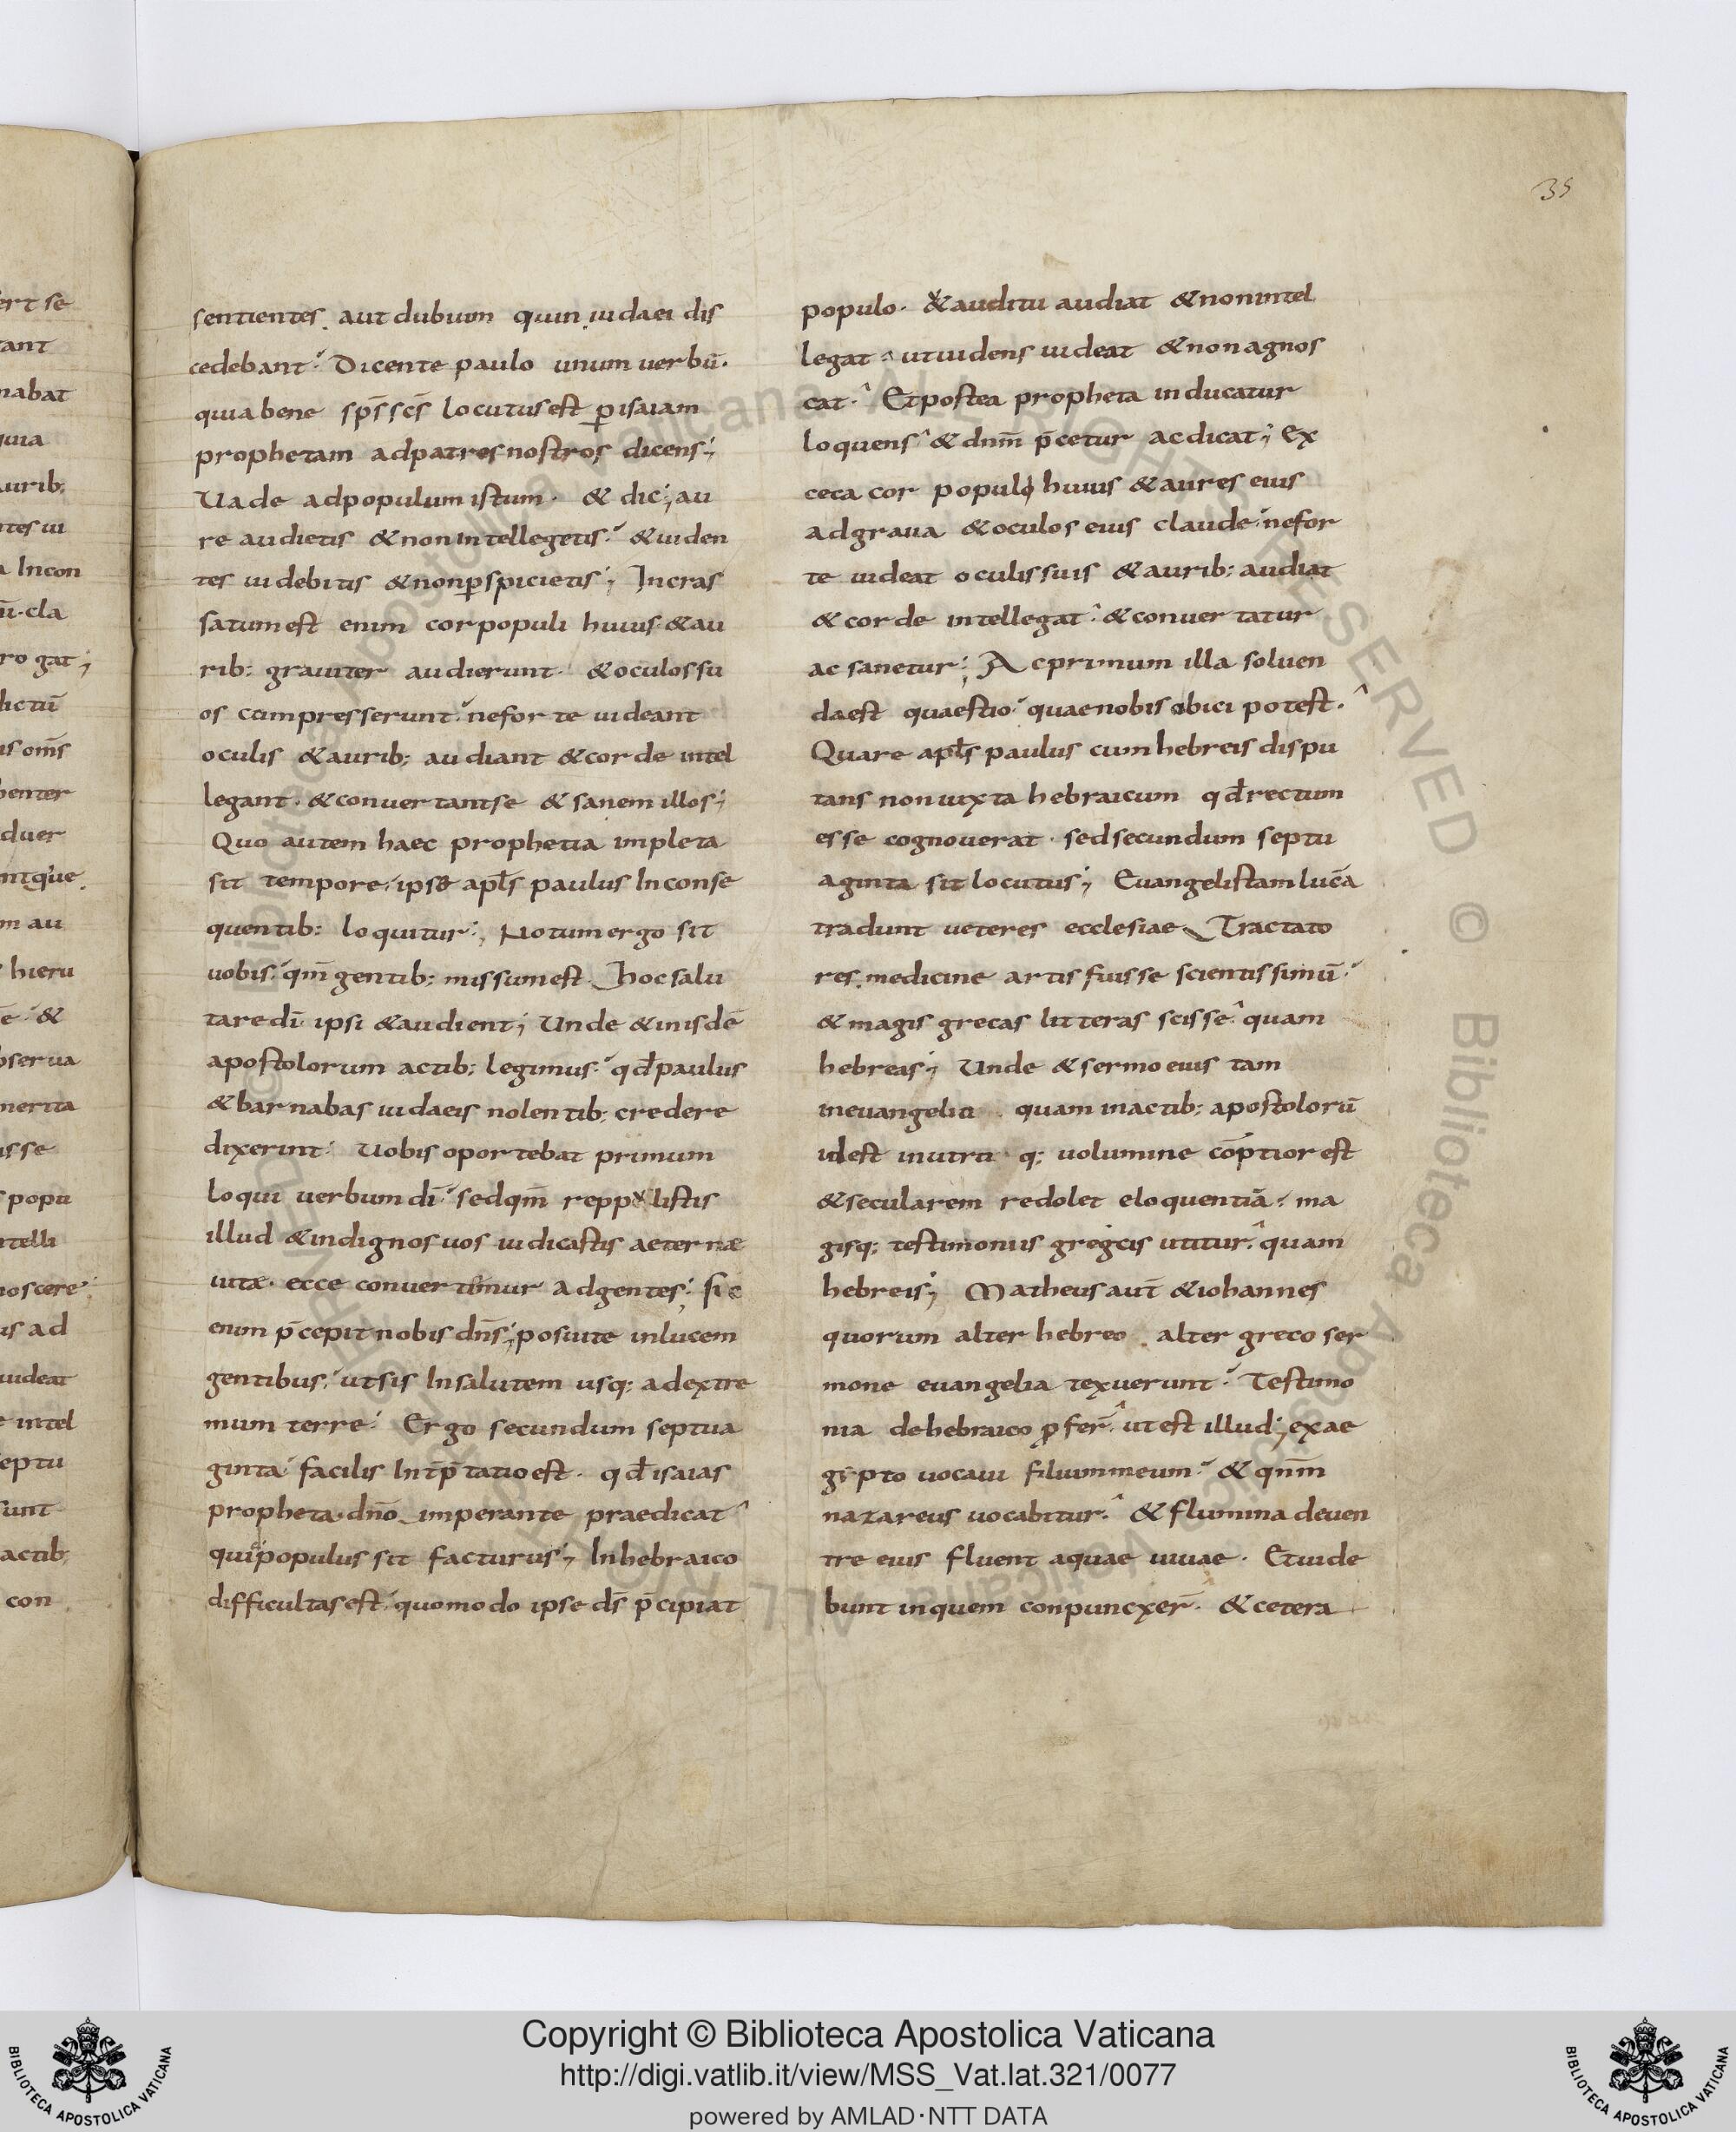 35
sentientes. aut dubium quin iudaei dis
cedebant. Dicente paulo unum uerbū.
quia bene sp̄s sc̄s locutus est ꝑ isaiam
prophetam ad patres nostros dicens;
Uade ad populum istum. & dic; au
re audietis & non intellegetis. & uiden
tes uidebitis & non ꝑspicietis; Incras
satum est enim cor populi huius & au
rib: grauiter audierunt. & oculos su
os compresserunt. ne forte uideant
oculis & aurib; audiant & corde intel
legant. & conuertant se & sanem illos;
Quo autem haec prophetia impleta
sit tempore. ipse apl̄s paulus In conse
quentib: loquitur; Notum ergo sit
uobis. qm̄ gentib; missum est. hoc salu
tare dī. ipsi & audient; Unde & in isdē
apostolorum actib; legimus. qd̄ paulus
& barnabas iudaeis nolentib; credere
dixerint. Uobis oportebat primum
loqui uerbum dī. sed qm̄ reppulistis
illud & indignos uos iudicastis aeternæ
uitæ. ecce conuertimur ad gentes; sic
enim p̄cepit nobis dn̄s; posuite in lucem
gentibus. ut sis In salutem usq; ad extre
mum terre. Ergo secundum septua
ginta. facilis Int̄p̄tatio est. qd̄ isaias
propheta. dn̄o imperante praedicat
quid populus sit facturus; In hebraico
difficultas est. quomodo ipse d̄s p̄cipiat
populo. & auditu audiat & non intel
legat. ut uidens uideat & non agnos
cat. Et postea propheta inducatur
loquens & dnm̄ p̄cetur ac dicat; ex
ceca cor populi huius & aures eius
adgraua & oculos eius claude. ne for
te uideat oculis suis & aurib; audiat
& corde intellegat. & conuertatur
ac sanetur; Ac primum illa soluen
da est quaestio. quae nobis obici potest.
Quare apl̄s paulus cum hebreis dispu
tans non iuxta hebraicum qd̄ rectum
esse cognouerat. sed secundum septu
aginta sit locutus; Euangelistam lucā
tradunt ueteres ecclesiae Tractato
res. medicine artis fuisse scientissimū.
& magis grecas litteras scisse. quam
hebreas; Unde & sermo eius tam
in euangelio quam in actib; apostolorū
id est in utro q; uolumine cōptior est
& secularem redolet eloquentiā. ma
gisq; testimoniis gregcis utitur. quam
hebreis; Matheus aut̄ & iohannes
quorum alter hebreo. alter greco ser
mone euangelia texuerunt. Testimo
nia de hebraico ꝓfer̄. ut est illud; ex ae
gypto uocaui filium meum. & qnm̄
nazareus uocabitur. & flumina de uen
tre eius fluent aquae uiuae. Et uide
bunt in quem conpuncxer̄. & cetera
Copyright © Biblioteca Apostolica Vaticana
http://digi.vatlib.it/view/MSS_Vat.lat.321/0077
powered by AMLAD·NTT DATA
BIBLIOTECA APOSTOLICA VATICANA
BIBLIOTECA APOSTOLICA VATICANA